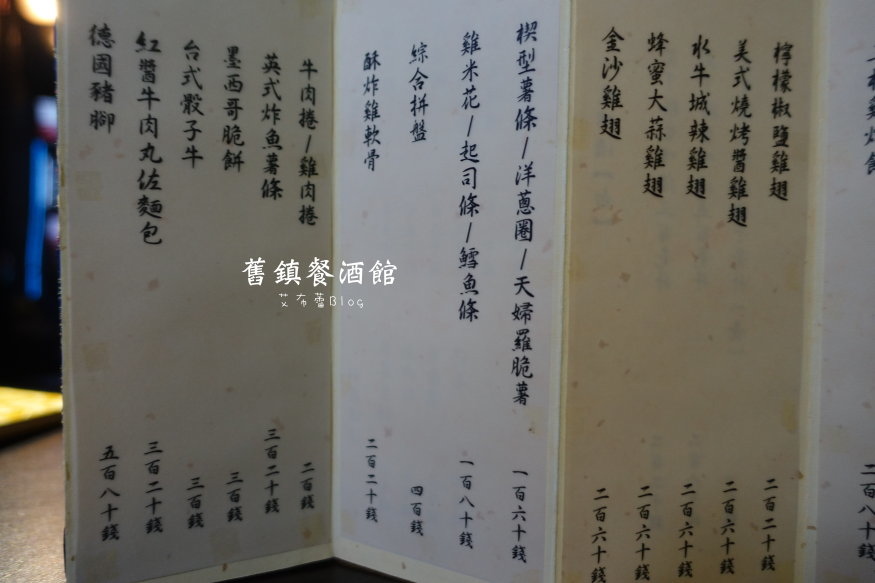 檸檬椒鹽雞翅 二百二十錢
美式燒烤醬雞翅 二百六十錢
水牛城辣雞翅 二百六十錢
蜂蜜大蒜雞翅 二百六十錢
金沙雞翅 二百六十錢
楔型薯條/洋蔥圈/天婦羅脆薯 一百六十錢
雞米花/起司條/鱈魚條 一百八十錢
綜合拼盤 四百錢
酥炸雞軟骨 二百二十錢
牛肉捲/雞肉捲 二百錢
英式炸魚薯條 三百二十錢
墨西哥脆餅 三百錢
台式骰子牛 三百錢
紅醬牛肉丸佐麵包 三百二十錢
德國豬腳 五百八十錢
舊鎮餐酒館
艾布蕾Blog